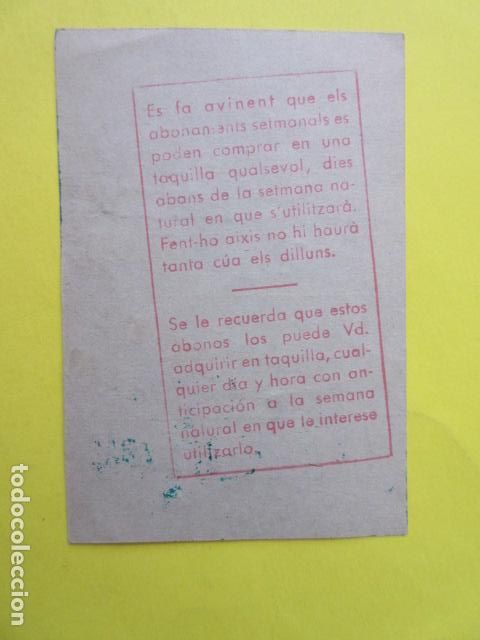 Es fa avinent que els
abonaments setmanals es
poden comprar en una
taquilla qualsevol, dies
abans de la setmana na-
tural en que s'utilitzarà.
Fent-ho aixis no hi haurà
tanta cúa els dilluns.
Se le recuerda que estos
abonos los puede Vd.
adquirir en taquilla, cual-
quier día y hora con an-
ticipación a la semana
natural en que le interese
utilizarlo.
todocoleccion